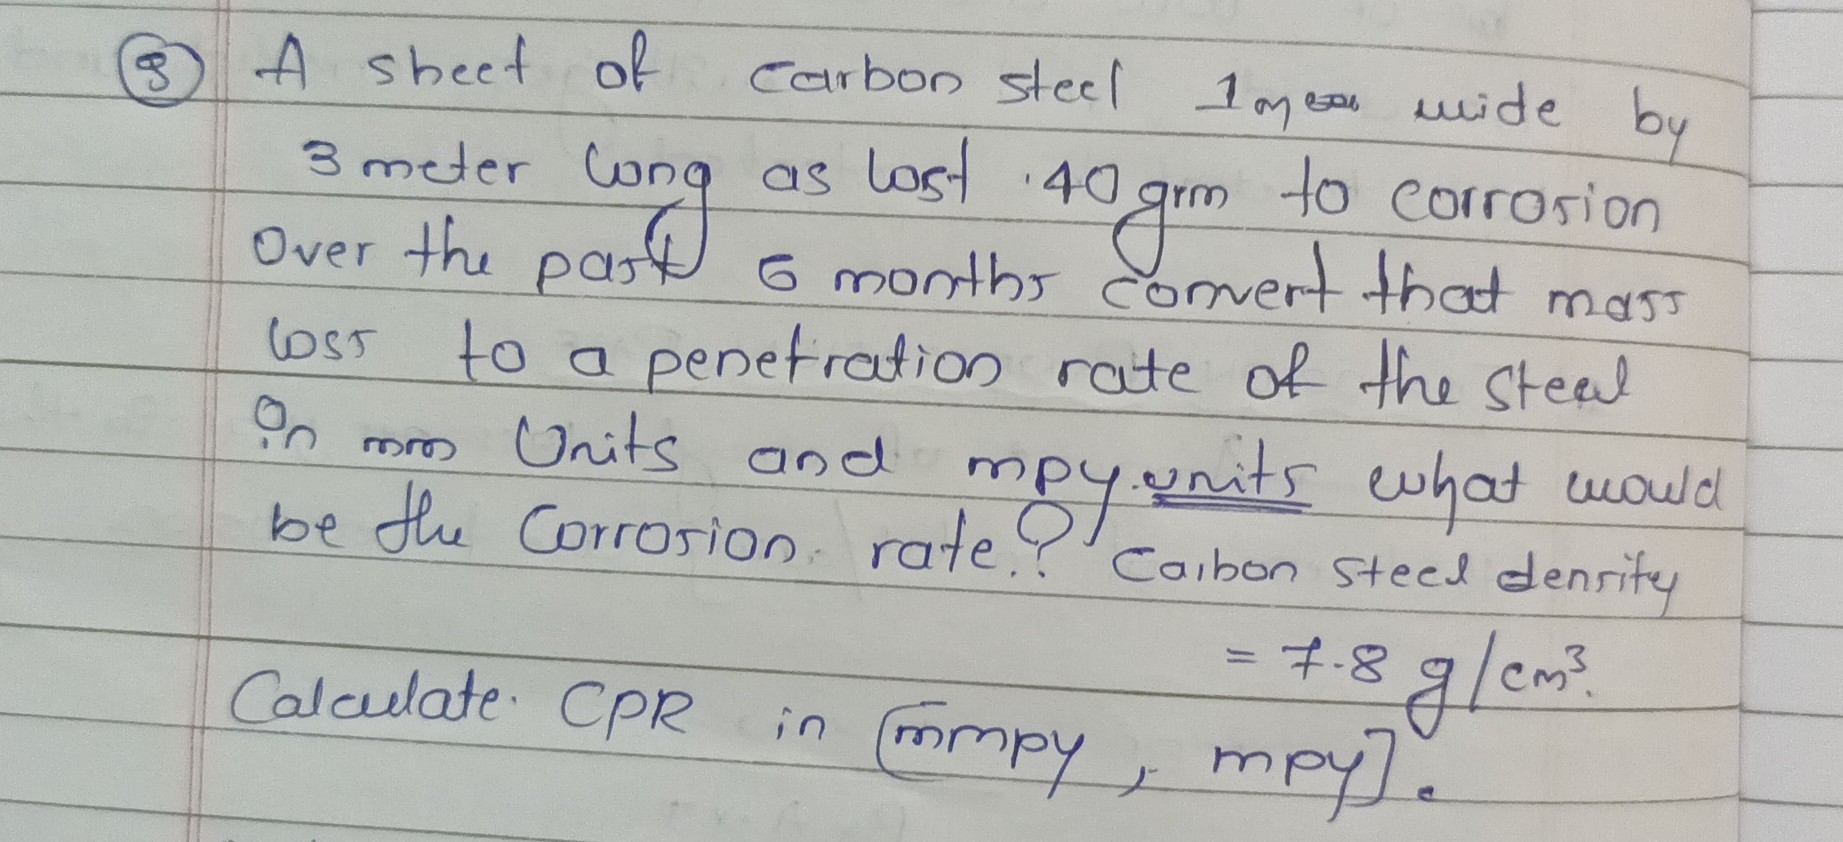 ③ A sheet of carbon steel 1m wide by
3 meter long as lost .40 grm to corrosion
Over the past 6 months convert that mass
loss to a penetration rate of the steel
In mm Units and mpy.units what would
be the Corrosion. rate.? Carbon steel density
= 7.8 g/cm³.
Calculate. CPR in [mmpy, mpy].